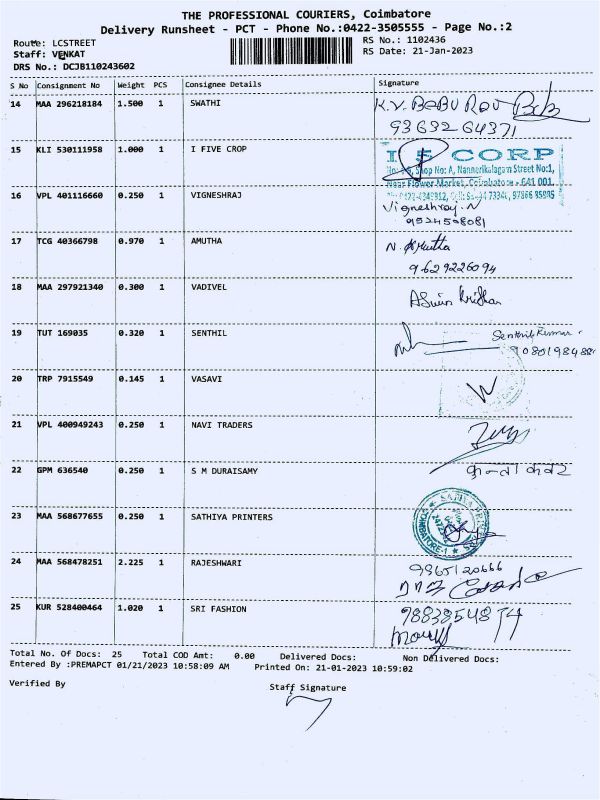 THE PROFESSIONAL COURIERS, Coimbatore
Delivery Runsheet - PCT - Phone No.:0422-3505555 - Page No.:2
Route: LCSTREET
RS No.: 1102436
Staff: VENKAT
RS Date: 21-Jan-2023
DRS No.: DCJB110243602
S No Consignment No Weight PCS Consignee Details Signature
14 MAA 296218184 1.500 1 SWATHI K.V. BABU RAO
9363264371
15 KLI 530111958 1.000 1 I FIVE CROP
I 5 CORP
Shop No: A, Nannerikalagam Street No:1,
Near Flower Market, Coimbatore - 641 001.
16 VPL 401116660 0.250 1 VIGNESHRAJ Vigneshraj. N
9524508081
17 TCG 40366798 0.970 1 AMUTHA N. Amutha
9629226094
18 MAA 297921340 0.300 1 VADIVEL
19 TUT 169035 0.320 1 SENTHIL Senthil Kumar
20 TRP 7915549 0.145 1 VASAVI
21 VPL 400949243 0.250 1 NAVI TRADERS
22 GPM 636540 0.250 1 S M DURAISAMY
23 MAA 568677655 0.250 1 SATHIYA PRINTERS
COIMBATORE-1
24 MAA 568478251 2.225 1 RAJESHWARI 9965120666
25 KUR 528400464 1.020 1 SRI FASHION
Total No. Of Docs: 25 Total COD Amt: 0.00 Delivered Docs: Non Delivered Docs:
Entered By :PREMAPCT 01/21/2023 10:58:09 AM Printed On: 21-01-2023 10:59:02
Verified By
Staff Signature